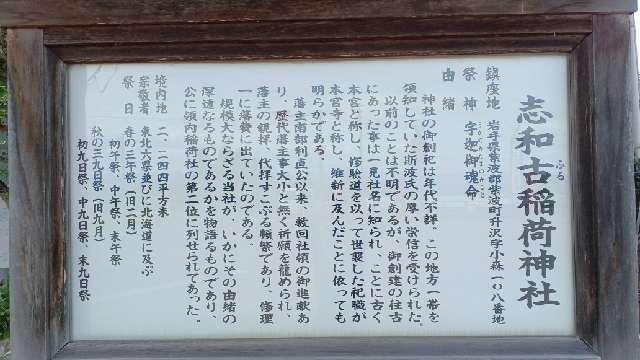 志和古稲荷神社
ふる
鎮座地　岩手県紫波郡紫波町升沢字小森一〇八番地
祭神　宇迦御魂命
由緒
神社の御創祀は年代不詳、この地方一帯を
領知していた斯波氏の厚い崇信を受けられた
以前のことは不明であるが、御創建の往古
にあった事は一見社名に知られ、ことに古く
本宮と称し、修験道を以って世襲した祀職が
本宮寺と称し、維新に及んだことに依っても
明らかである。
藩主南部利直公以来、数回社領の御進献あ
り、歴代藩主事大小と無く祈願を籠められ、
藩主の親拝、代拝すこぶる頻繁であり、修理
一に藩費に出ていたのである。
規模大ならざる当社が、いかにその由緒の
厚遠なるものであるかを物語るものであり、
公に領内稲荷社の第二位に列せられてあった。
境内地　二、二四四平方米
崇敬者　東北六県並びに北海道に及ぶ
祭日　春の三午祭（旧二月）
初午祭、中午祭、末午祭
秋の三九日祭（旧九月）
初九日祭、中九日祭、末九日祭